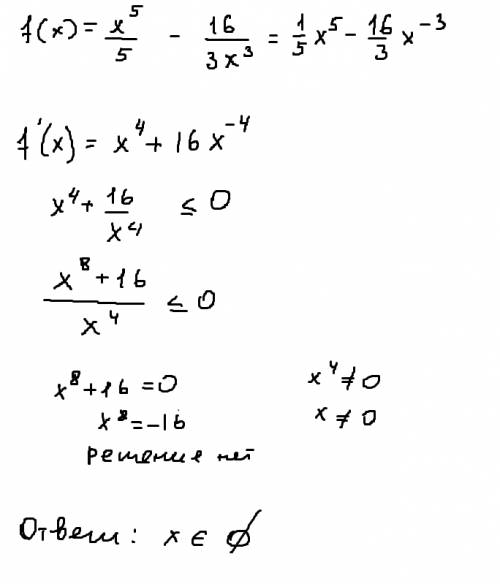 f(x) = x⁵/5 - 16/3x³ = 1/5 x⁵ - 16/3 x⁻³
f'(x) = x⁴ + 16x⁻⁴
x⁴ + 16/x⁴ ≤ 0
(x⁸ + 16)/x⁴ ≤ 0
x⁸ + 16 = 0 x⁴ ≠ 0
x⁸ = -16 x ≠ 0
решения нет
Ответ: x ∈ ∅